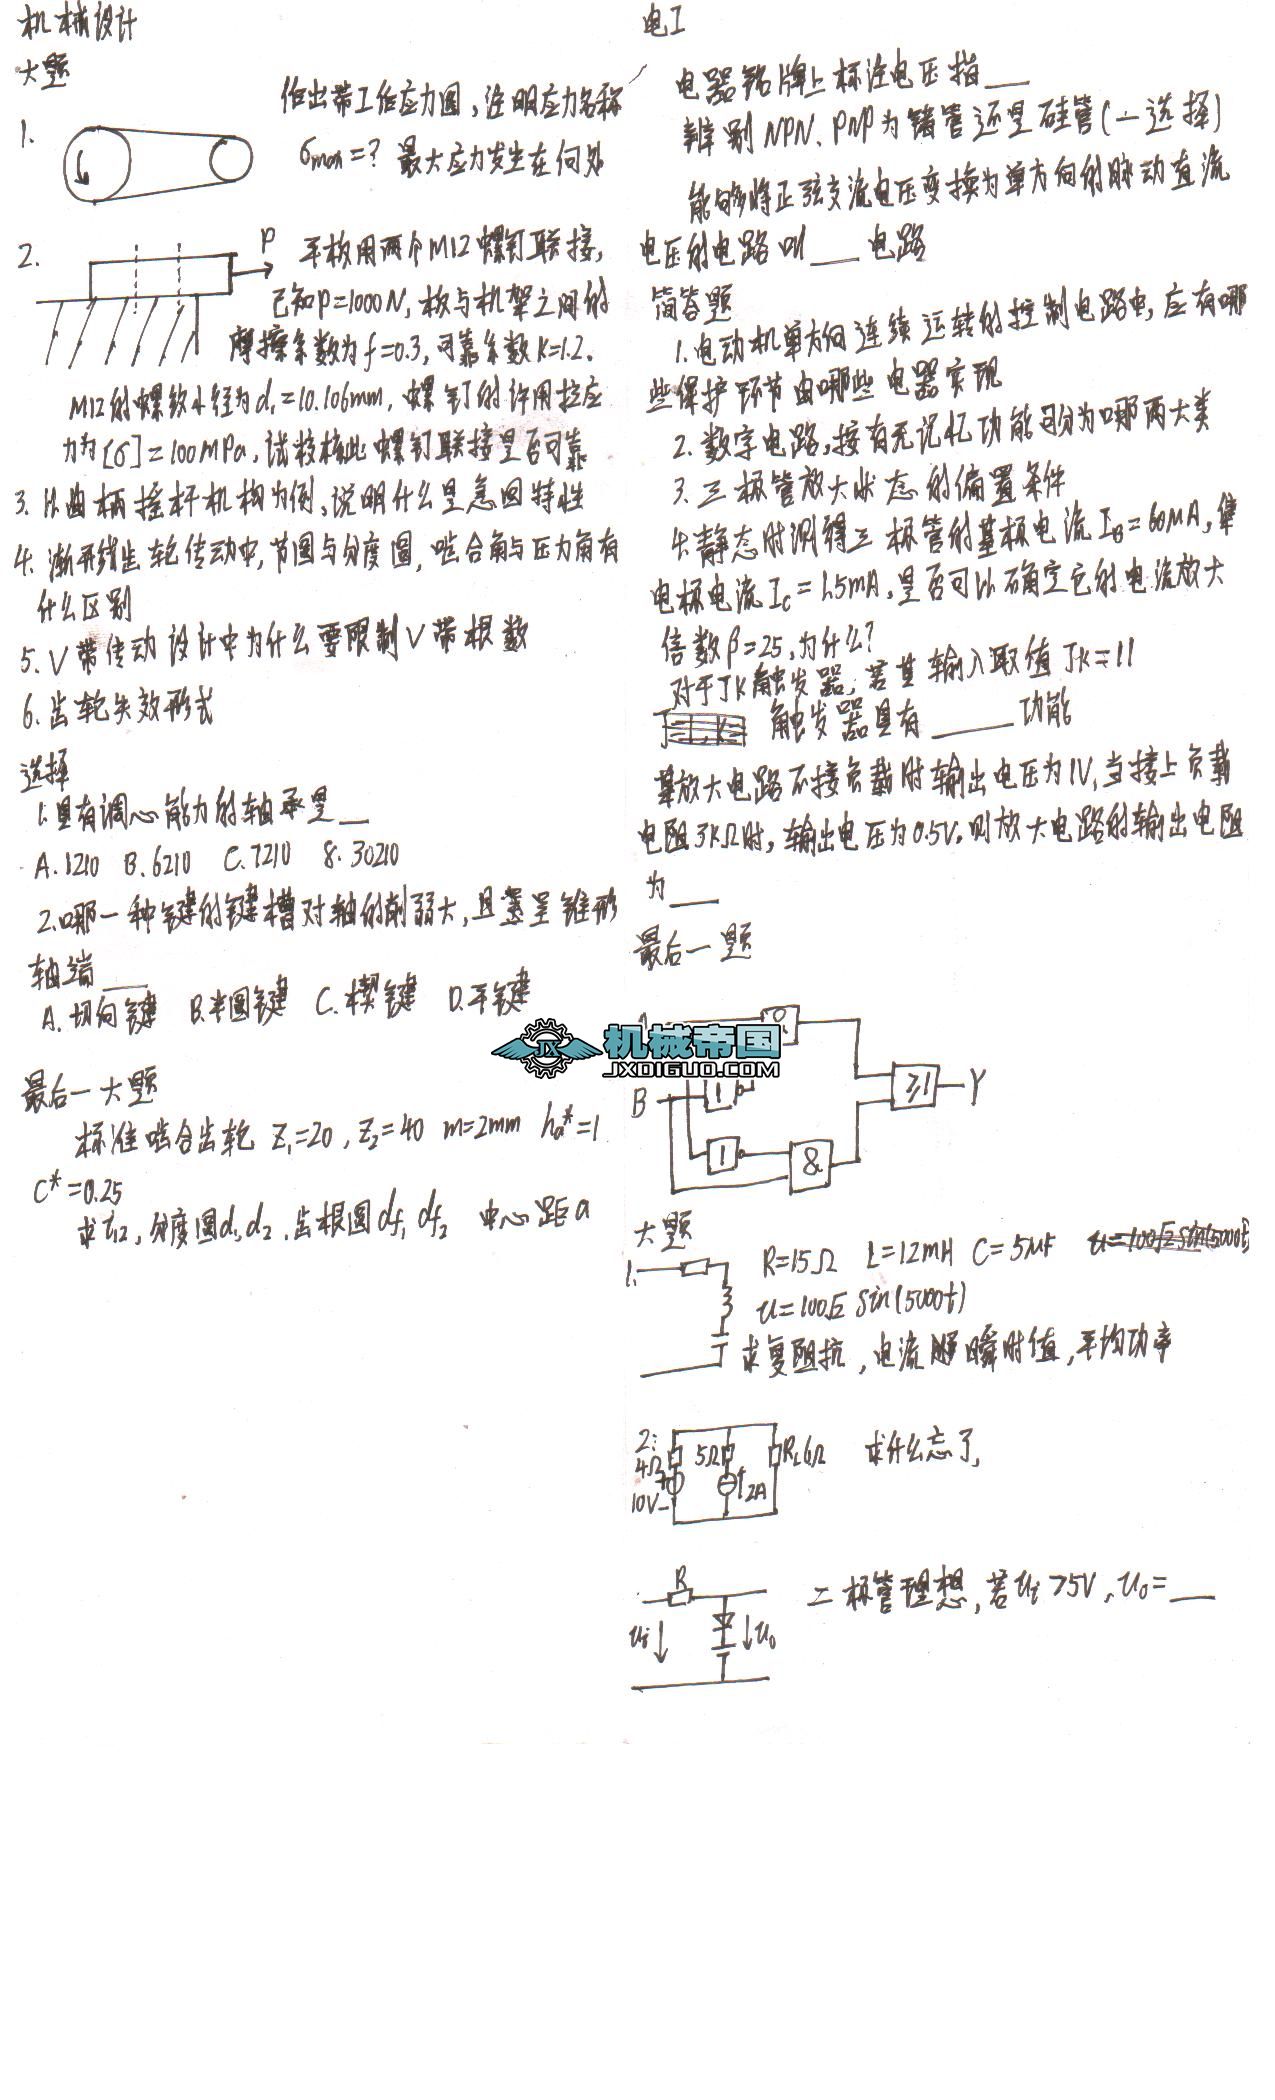 机械设计
大题
1.
作出带工作应力图,注明应力名称
σmax=? 最大应力发生在何处
2.
P
平板用两个M12螺钉联接,
已知P=1000N,板与机架之间的
摩擦系数为f=0.3,可靠系数K=1.2。
M12的螺纹小径为d₁=10.106mm,螺钉的许用拉应
力为[σ]=100MPa,试校核此螺钉联接是否可靠
3. 以曲柄摇杆机构为例,说明什么是急回特性
4. 渐开线齿轮传动中,节圆与分度圆,啮合角与压力角有
什么区别
5. V带传动设计中为什么要限制V带根数
6. 齿轮失效形式
选择
1.具有调心能力的轴承是__
A.1210 B.6210 C.7210 8.30210
2.哪一种键的键槽对轴的削弱大,且常呈锥形
轴端__
A.切向键 B.半圆键 C.楔键 D.平键
最后一大题
标准啮合齿轮 Z₁=20,Z₂=40 m=2mm ha*=1
C*=0.25
求i₁₂,分度圆d₁,d₂,齿根圆df₁ df₂ 中心距a
电工
电器铭牌上标注电压指__
辨别NPN、PNP为锗管还是硅管(一选择)
能够将正弦交流电压变换为单方向的脉动直流
电压的电路叫__电路
简答题
1.电动机单方向连续运转的控制电路中,应有哪
些保护环节由哪些电器实现
2.数字电路,按有无记忆功能可分为哪两大类
3.三极管放大状态的偏置条件
4.静态时测得三极管的基极电流IB=60MA,集
电极电流Ic=1.5mA,是否可以确定它的电流放大
倍数β=25,为什么?
对于JK触发器,若其输入取值JK=11
触发器具有____功能
某放大电路不接负载时输出电压为1V,当接上负载
电阻3KΩ时,输出电压为0.5V。则放大电路的输出电阻
为__
最后一题
机械帝国
JXDIGUO.COM
JX
B
1
≥1
Y
1
&
大题
1.
R=15Ω L=12mH C=5μF
u=100√2 sin(5000t)
求复阻抗,电流瞬时值,平均功率
2:
4Ω
10V
5Ω
2A
RL6Ω
求什么忘了,
R
ui
uo
二极管理想,若ui>5V,uo=__